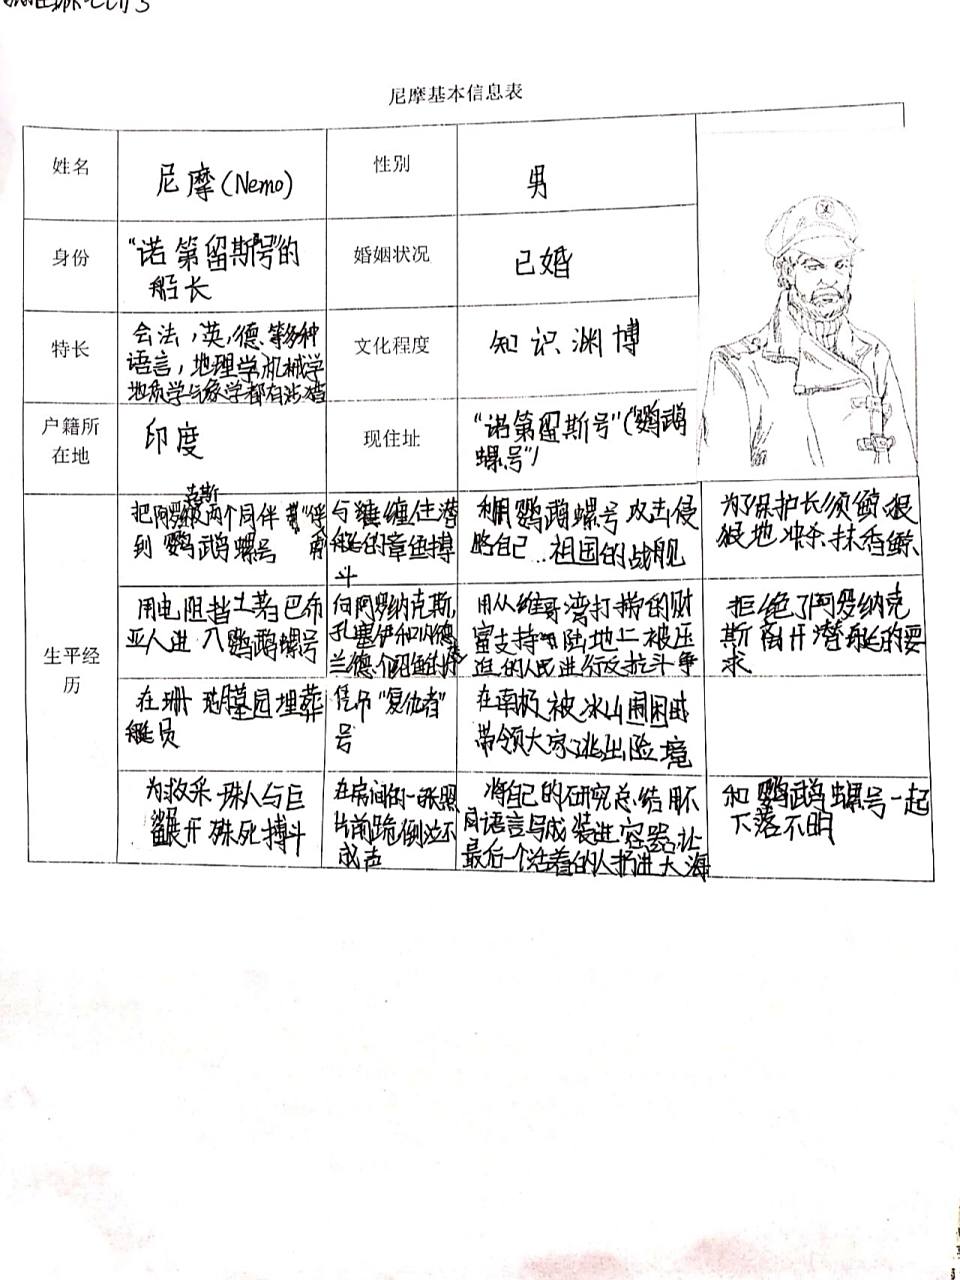 尼摩基本信息表
姓名
尼摩(Nemo)
性别
男
身份
"诺第留斯号"的
船长
婚姻状况
已婚
特长
会法,英,德、等多种
语言,地理学,机械学
地质学与象学都有涉猎
文化程度
知识渊博
户籍所
在地
印度
现住址
"诺第留斯号"("鹦鹉
螺号")
生平经
历
把阿罗纳克斯及两个同伴"俘
到鹦鹉螺号
与缠住潜
艇的章鱼搏
斗
利用鹦鹉螺号攻击侵
略自己…祖国的战舰
为了保护长须鲸,狠
狠地冲杀、抹香鲸、
用电阻挡土著巴布
亚人进入鹦鹉螺号
向阿罗纳克斯,
孔塞伊和内德
兰德介绍鱼的
用从维哥湾打捞的财
富支持陆地上被压
迫的人民进行反抗斗争
拒绝了阿罗纳克
斯离开潜艇的要
求
在珊瑚墓园埋葬
艇员
凭吊"复仇者"
号
在南极被冰山围困时
带领大家逃出险境
为救采珠人与巨
鲨展开殊死搏斗
在房间的一张照
片前跪倒泣不
成声
将自己的研究总结用不
同语言写成装进容器,让
最后一个活着的人扔进大海
和鹦鹉螺号一起
下落不明